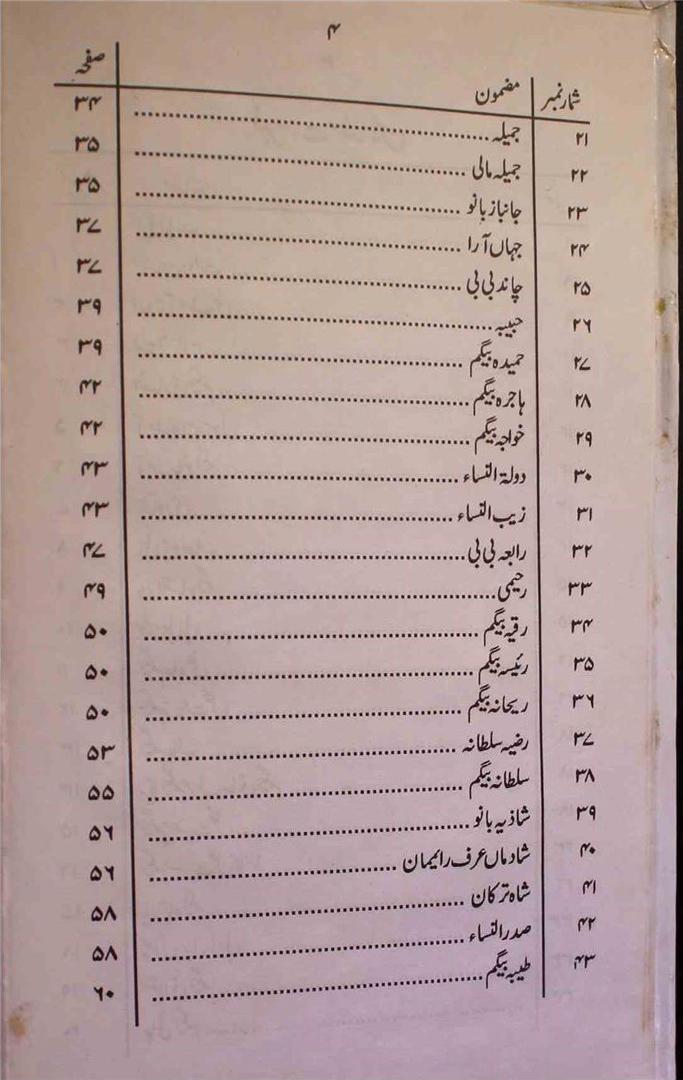 ۴
شمار نمبر مضمون صفحہ
۲۱ جمیلہ ........................................ ۳۴
۲۲ جمیلہ مالی ........................................ ۳۵
۲۳ جانباز بانو ........................................ ۳۵
۲۴ جہاں آرا ........................................ ۳۷
۲۵ چاند بی بی ........................................ ۳۷
۲۶ حبیبہ ........................................ ۳۹
۲۷ حمیدہ بیگم ........................................ ۳۹
۲۸ ہاجرہ بیگم ........................................ ۴۲
۲۹ خواجہ بیگم ........................................ ۴۲
۳۰ دولۃ النساء ........................................ ۴۳
۳۱ زیب النساء ........................................ ۴۳
۳۲ رابعہ بی بی ........................................ ۴۷
۳۳ رحیمی ........................................ ۴۹
۳۴ رقیہ بیگم ........................................ ۵۰
۳۵ رئیسہ بیگم ........................................ ۵۰
۳۶ ریحانہ بیگم ........................................ ۵۰
۳۷ رضیہ سلطانہ ........................................ ۵۳
۳۸ سلطانہ بیگم ........................................ ۵۵
۳۹ شاذیہ بانو ........................................ ۵۶
۴۰ شادماں عرف رائیمان ........................................ ۵۶
۴۱ شاہ ترکان ........................................ ۵۸
۴۲ صدر النساء ........................................ ۵۸
۴۳ طیبہ بیگم ........................................ ۶۰